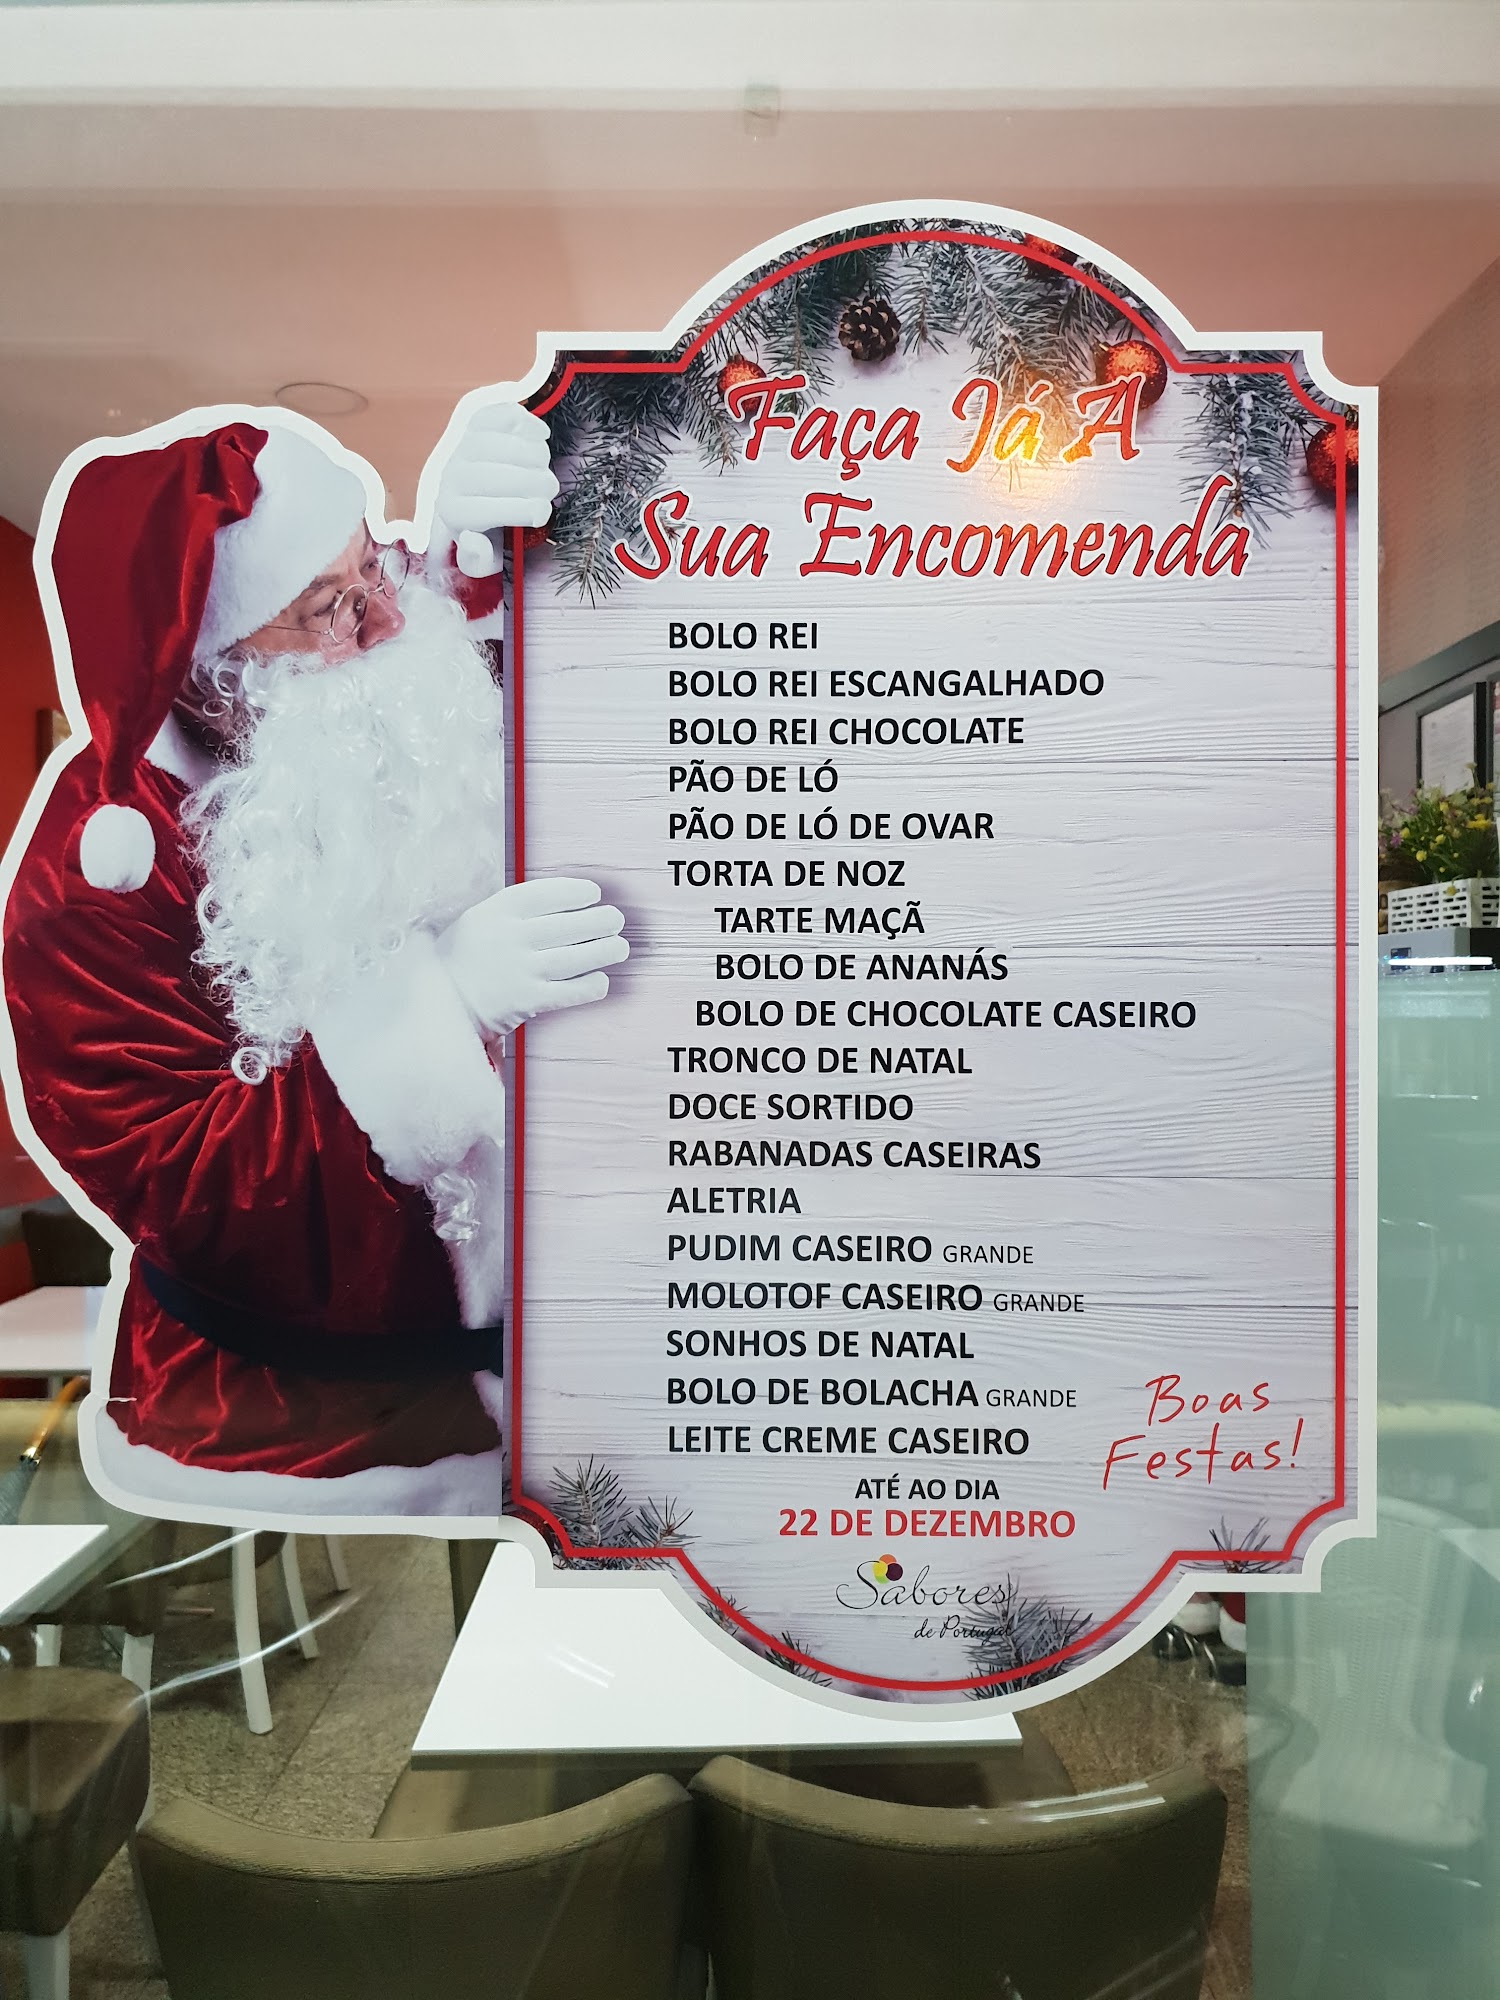 Faça Já A
Sua Encomenda
BOLO REI
BOLO REI ESCANGALHADO
BOLO REI CHOCOLATE
PÃO DE LÓ
PÃO DE LÓ DE OVAR
TORTA DE NOZ
TARTE MAÇÃ
BOLO DE ANANÁS
BOLO DE CHOCOLATE CASEIRO
TRONCO DE NATAL
DOCE SORTIDO
RABANADAS CASEIRAS
ALETRIA
PUDIM CASEIRO GRANDE
MOLOTOF CASEIRO GRANDE
SONHOS DE NATAL
BOLO DE BOLACHA GRANDE
LEITE CREME CASEIRO
Boas
Festas!
ATÉ AO DIA
22 DE DEZEMBRO
Sabores
de Portugal